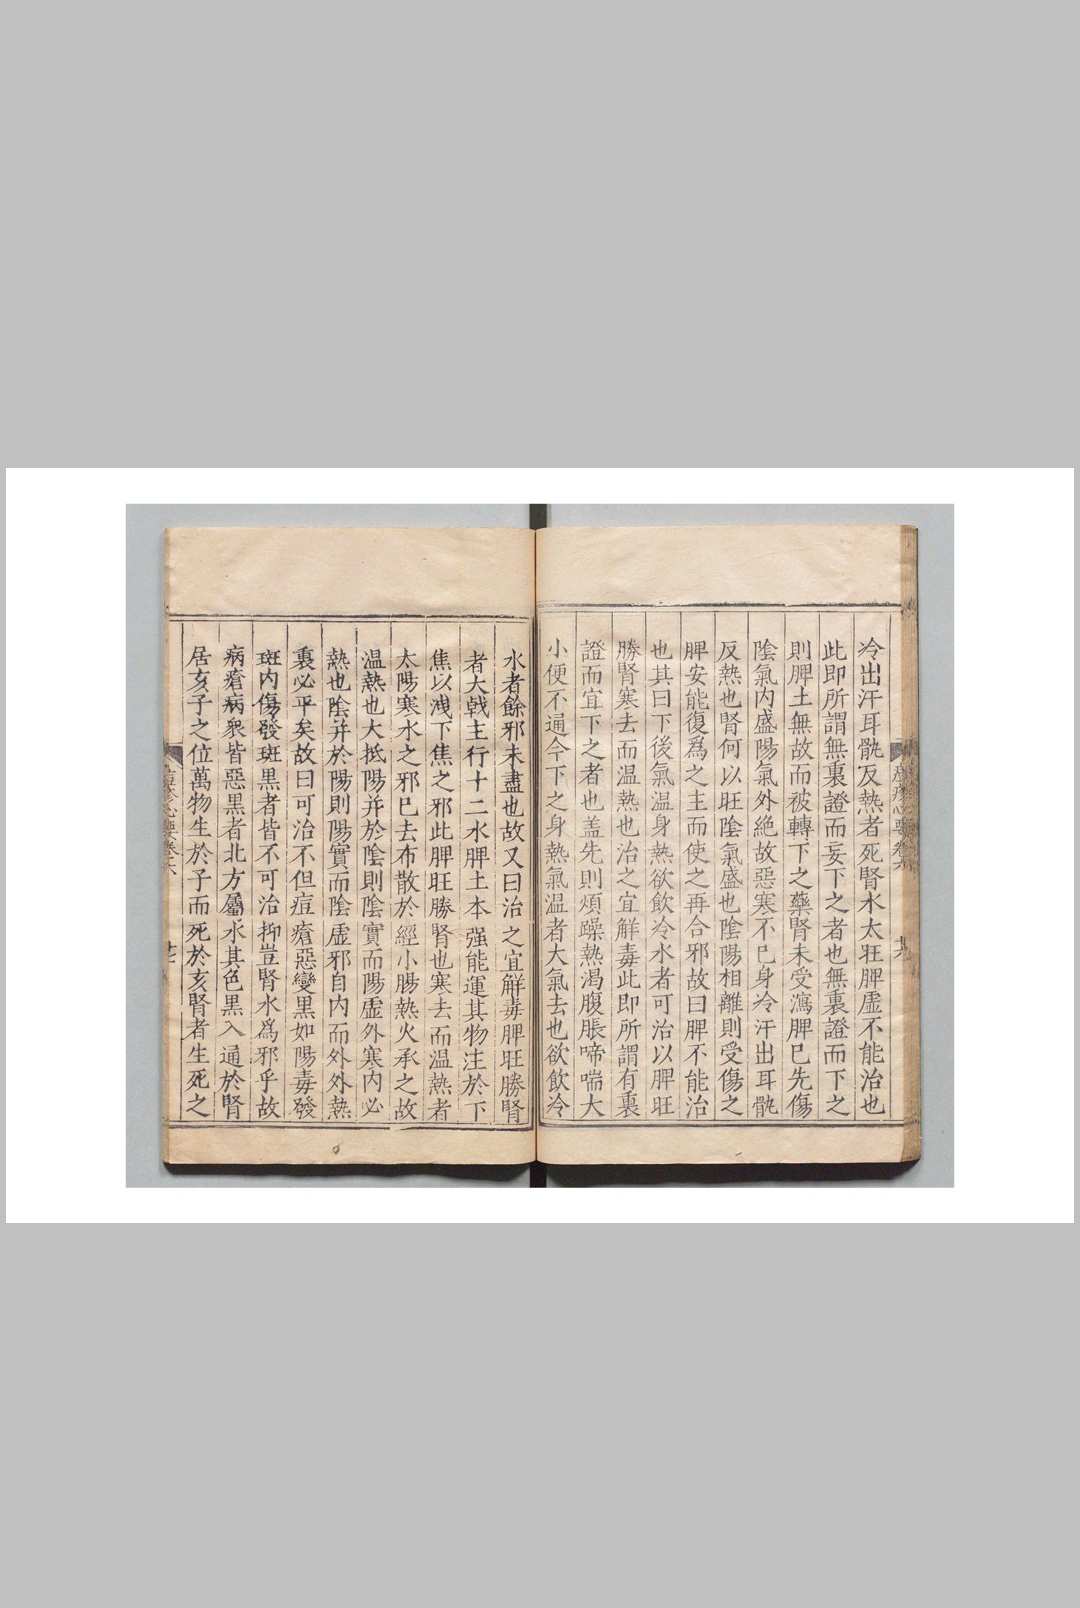 冷出汗耳骩反熱者死腎水太旺脾虛不能治也
此即所謂無裏證而妄下之者也無裏證而下之
則脾土無故而被轉下之藥腎未受瀉脾已先傷
陰氣内盛陽氣外絶故惡寒不已身冷汗出耳骩
反熱也腎何以旺陰氣盛也陰陽相離則受傷之
脾安能復為之主而使之再合邪故曰脾不能治
也其曰下後氣温身熱欲飲冷水者可治以脾旺
勝腎寒去而温熱也治之宜觧毒此即所謂有裏
證而宜下之者也盖先則煩躁熱渴腹脹啼喘大
小便不通今下之身熱氣温者大氣去也欲飲冷
水者餘邪未盡也故又曰治之宜觧毒脾旺勝腎
者大戟主行十二水脾土本强能運其物注於下
焦以洩下焦之邪此脾旺勝腎也寒去而温熱者
太陽寒水之邪已去布散於經小腸熱火承之故
温熱也大抵陽并於陰則陰實而陽虛外寒内必
熱也陰并於陽則陽實而陰虛邪自内而外外熱
裏必平矣故曰可治不但痘瘡惡變黑如陽毒發
斑内傷發斑黑者皆不可治抑豈腎水爲邪乎故
病瘡病衆皆惡黑者北方屬水其色黑入通於腎
居亥子之位萬物生於子而死於亥腎者生死之
痘疹心要卷十六
廿七